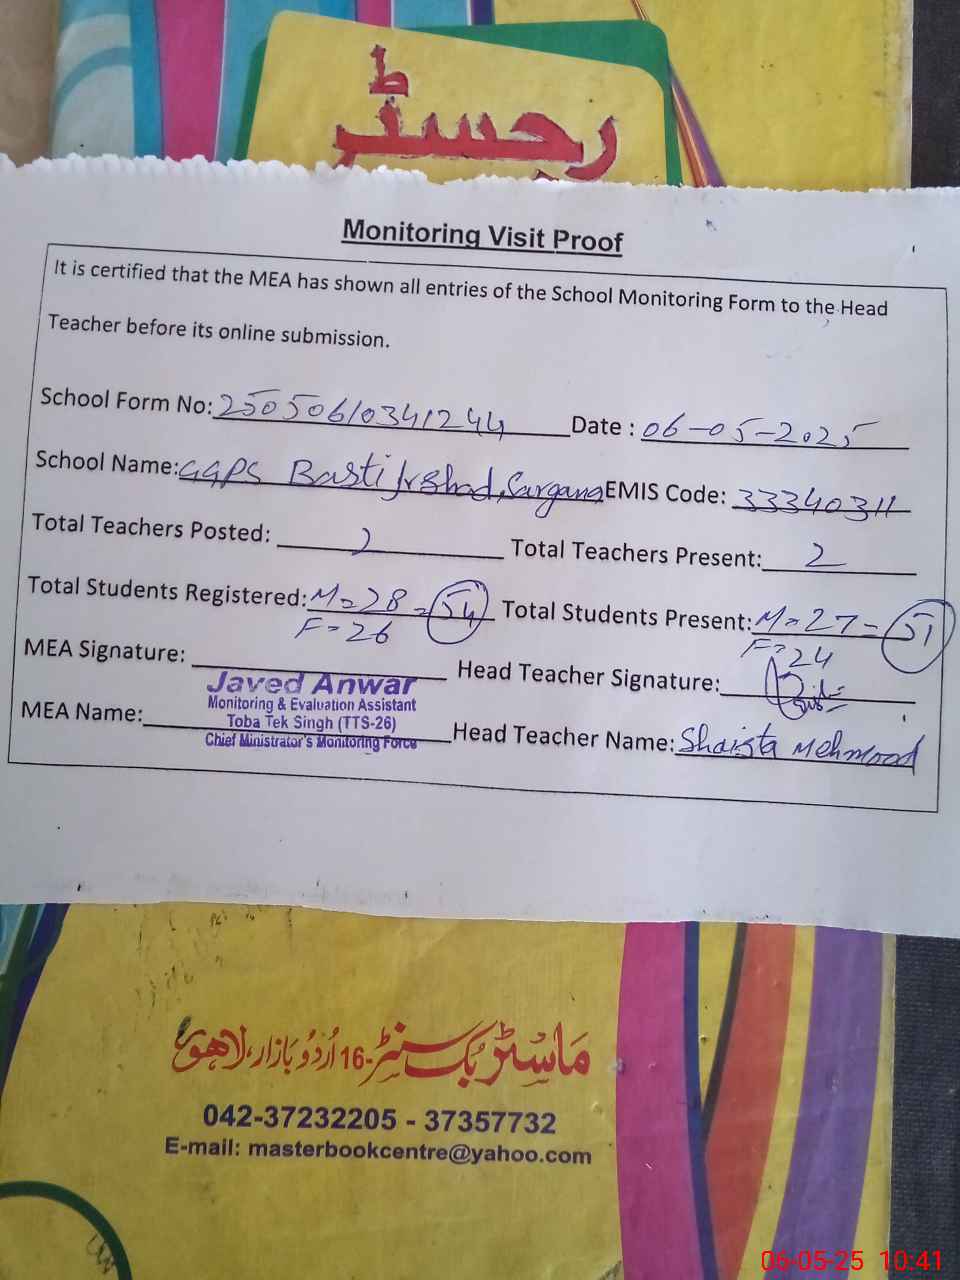 رجسٹر
Monitoring Visit Proof
It is certified that the MEA has shown all entries of the School Monitoring Form to the Head
Teacher before its online submission.
School Form No: 25050610341244 Date : 06-05-2025
School Name: GGPS Basti Irshad, Sargana EMIS Code: 33340311
Total Teachers Posted: 2 Total Teachers Present: 2
Total Students Registered: M=28 = 54 Total Students Present: M=27 = 51
F=26 F=24
MEA Signature: Head Teacher Signature:
Javed Anwar
Monitoring & Evaluation Assistant
Toba Tek Singh (TTS-26)
Chief Minister's Monitoring Force
MEA Name: Head Teacher Name: Shaista Mehmood
ماسٹر بک سنٹر-16 اُردُو بازار، لاہور
042-37232205 - 37357732
E-mail: masterbookcentre@yahoo.com
06-05-25 10:41